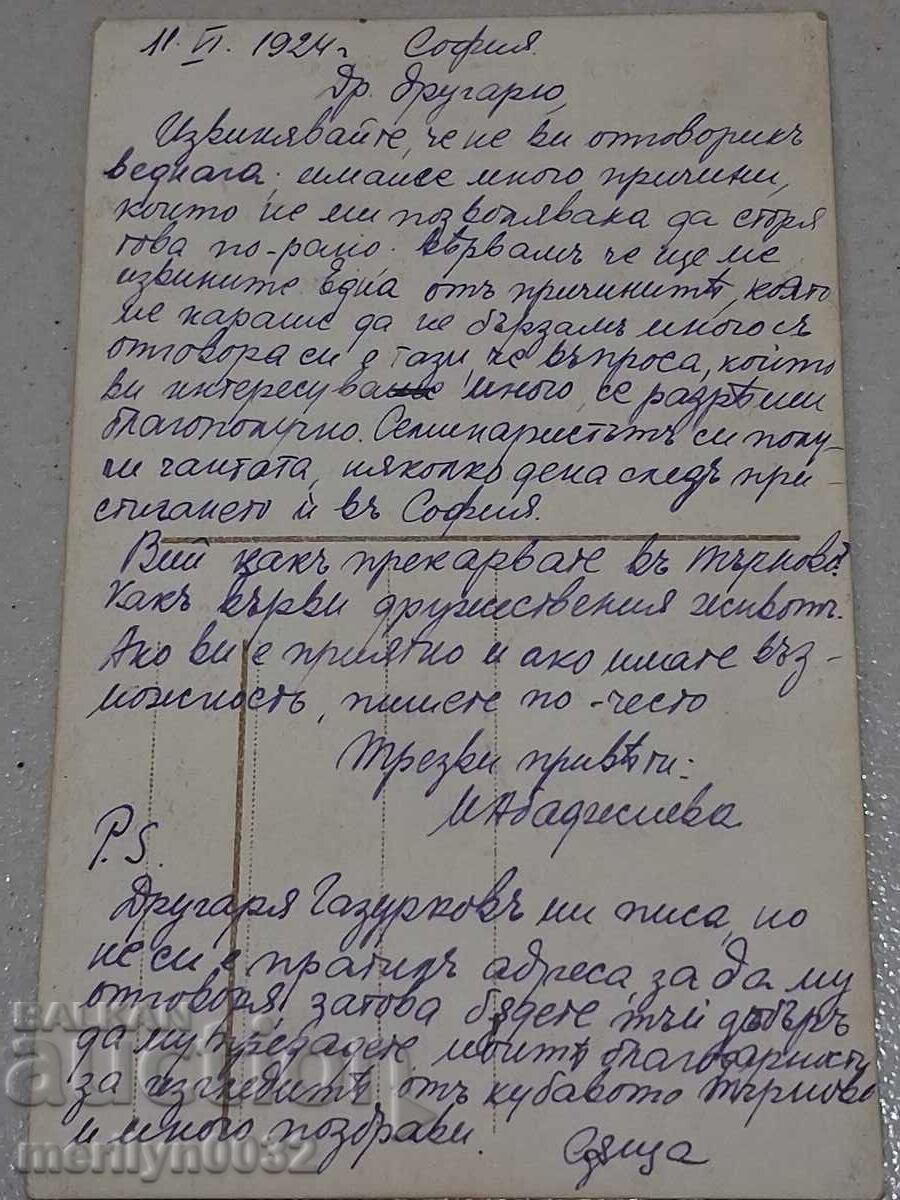 11. VI. 1924 г. София.
Др. Другарю,
Извинявайте, че не ви отговорихъ
веднага; имаше много причини,
които не ми позволяваха да сторя
това по-рано. Вѣрвамъ че ще ме
извините. Една отъ причинитѣ, която
ме караше да не бързамъ много съ
отговора си е тази, че въпроса, който
ви интересуваше много, се разрѣши
благополучно. Семинаристътъ си полу-
чи чантата, няколко дена следъ при-
стигането ѝ въ София.
Вий какъ прекарвате въ Търново?
Какъ върви дружествения животъ.
Ако ви е приятно и ако имате въз-
можность, пишете по-често
Трезви привѣти:
И Абаджиева
P.S.
Другаря Газурковъ ни писа, но
не си е пратилъ адреса, за да му
отговоря, затова бѫдете тъй добъръ
да му предадете моитѣ благодарность
за изгледитѣ отъ хубавото Търново
и много поздрави.
Сѫща
BALKAN
auction
merilyn0032